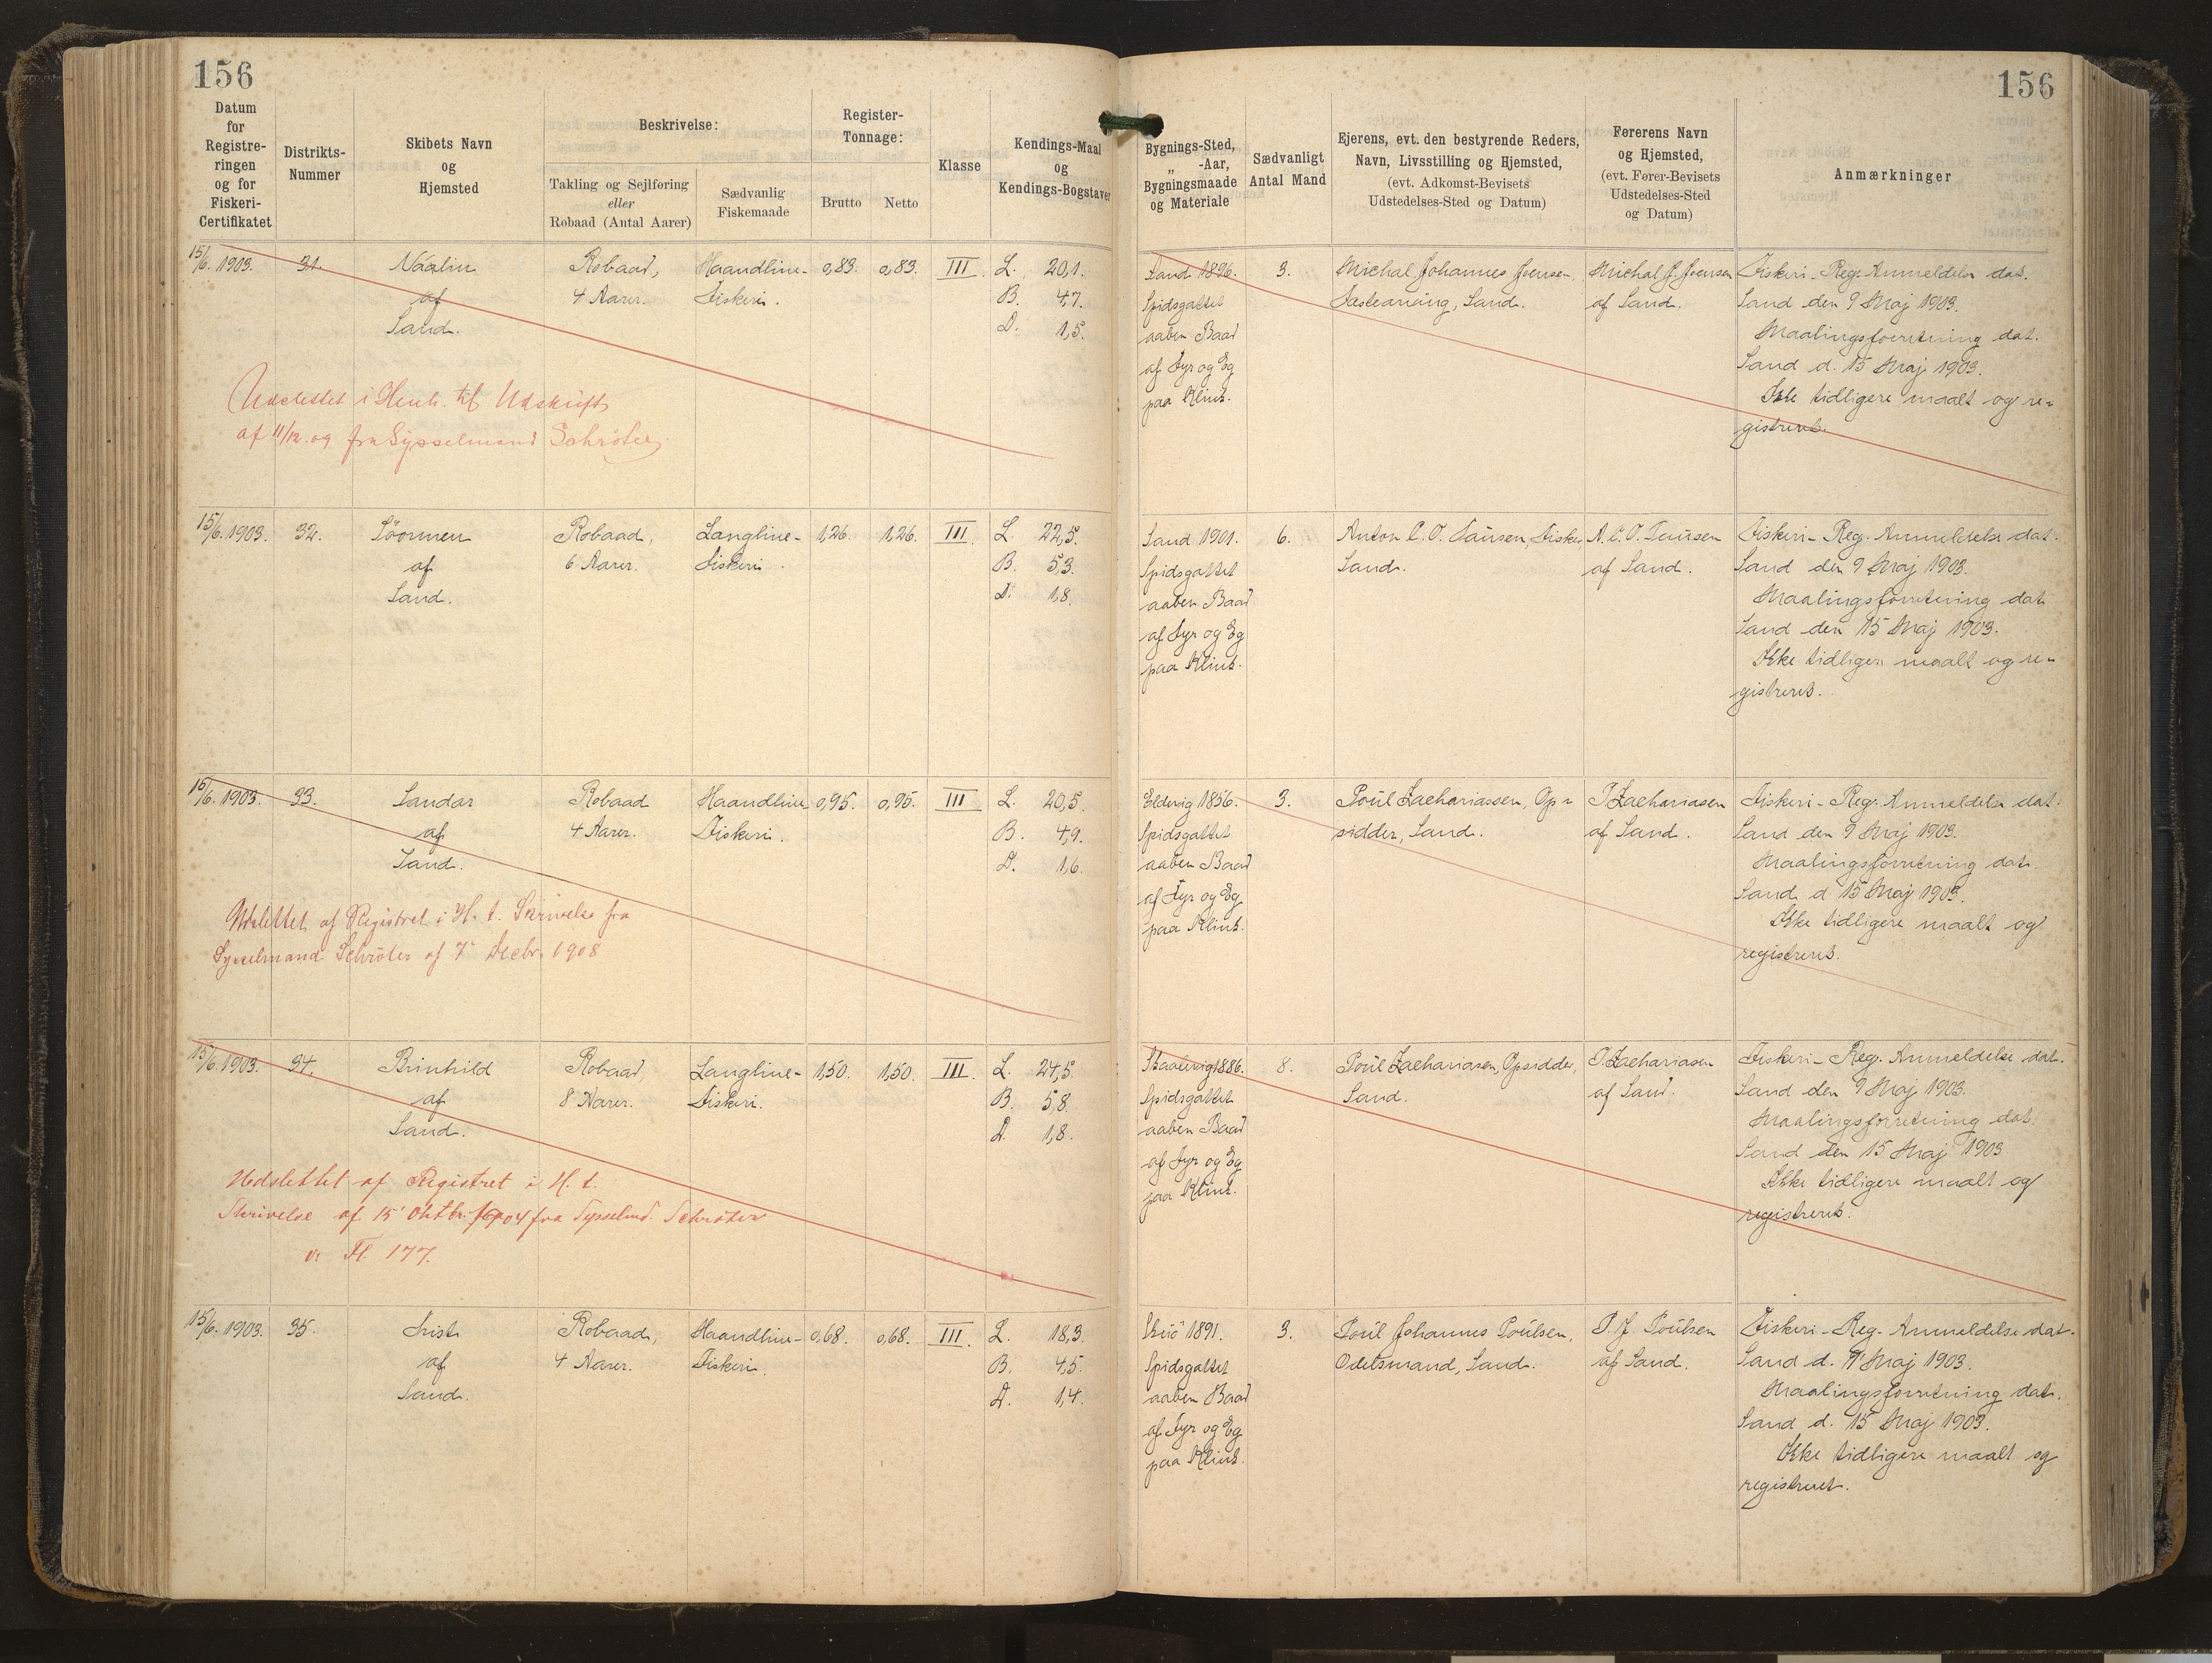 156
156
Datum for Registreringen og for Fiskeri-Certifikatet
Distrikts-Nummer
Skibets Navn og Hjemsted
Beskrivelse:
Takling og Sejlføring eller Robaad (Antal Aarer)
Sædvanlig Fiskemaade
Register-Tonnage:
Brutto
Netto
Klasse
Kendings-Maal og Kendings-Bogstaver
Bygnings-Sted, „ -Aar, Bygningsmaade og Materiale
Sædvanligt Antal Mand
Ejerens, evt. den bestyrende Reders, Navn, Livsstilling og Hjemsted, (evt. Adkomst-Bevisets Udstedelses-Sted og Datum)
Førerens Navn og Hjemsted, (evt. Fører-Bevisets Udstedelses-Sted og Datum)
Anmærkninger
15/6. 1903. 31. Robaad, Haandline- 0,83. 0,83. III. L. 20,1.
af 4 Aarer. Fiskeri. B. 4,7.
Sand. D. 1,5.
Udslettet i Henh. til Udskrift
af 11/12. 09 fra Sysselmand Schröter.
Sand 1896. 3. Michal Johannes Joensen, Michal J. Joensen Fiskeri-Reg. Anmeldelse dat.
Spidsgattet Sand. af Sand. Sand den 9 Maj 1903.
aaben Baad Maalingsforretning dat.
af Fyr og Eg Sand d. 15 Maj 1903.
paa Klink. Ikke tidligere maalt og re-
gistreret.
15/6. 1903. 32. Robaad, Langline- 1,26. 1,26. III. L. 22,5.
af 6 Aarer. Fiskeri. B. 5,3.
Sand. D. 1,8.
Sand 1901. 6. Anton C. O. Tausen, Fisker, A. C. O. Tausen Fiskeri-Reg. Anmeldelse dat.
Spidsgattet Sand. af Sand. Sand den 9 Maj 1903.
aaben Baad Maalingsforretning dat.
af Fyr og Eg Sand den 15 Maj 1903.
paa Klink. Ikke tidligere maalt og re-
gistreret.
15/6. 1903. 33. Sandar Robaad Haandline 0,95. 0,95. III L. 20,5.
af 4 Aarer. Fiskeri. B. 4,9.
Sand. D. 1,6.
Udslettet af Registret i H. t. Skrivelse fra
Sysselmand Schröter af 7' Decbr. 1908
1856. 3. Poúl Zachariassen, Op- P Zachariasen Fiskeri-Reg. Anmeldelse dat.
Spidsgattet sidder, Sand. af Sand. Sand den 9 Maj 1903.
aaben Baad Maalingsforretning dat.
af Fyr og Eg Sand d 15 Maj 1903.
paa Klink. Ikke tidligere maalt og
registreret.
15/6. 1903. 34. Brinhild Robaad Langline- 1,50. 1,50. III. L. 24,5.
af 8 Aarer. Fiskeri. B. 5,8.
Sand. D. 1,8.
Udslettet af Registret i H. t.
Skrivelse af 15' Oktbr. 1904 fra Sysselmd. Schröter
v. Fl. 177.
Skaalevig 1886. 8. Poúl Zachariasen, Opsidder, P. Zachariasen Fiskeri-Reg. Anmeldelse dat.
Spidsgattet Sand. af Sand. Sand den 9 Maj 1903.
aaben Baad Maalingsforretning dat.
af Fyr og Eg Sand den 15 Maj 1903
paa Klink. Ikke tidligere maalt og
registreret.
15/6. 1903. 35. Robaad, Haandline- 0,68. 0,68. III. L. 18,3
af 4 Aarer. Fiskeri. B. 4,5.
Sand. D. 1,4.
Skuö 1891. 3. Poúl Johannes Poúlsen, P. J. Poúlsen Fiskeri-Reg. Anmeldelse dat.
Spidsgattet Odelsmand, Sand. af Sand. Sand d. 9 Maj 1903.
aaben Baad Maalingsforretning dat.
af Fyr og Eg Sand d. 15 Maj 1903.
paa Klink. Ikke tidligere maalt og
registreret.